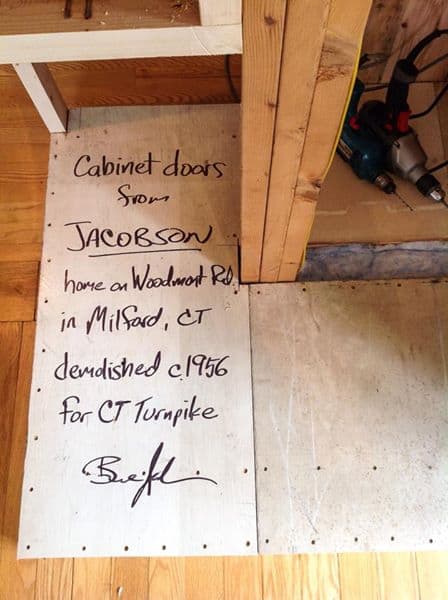 Cabinet doors
from
JACOBSON
home on Woodmont Rd.
in Milford, CT
demolished c.1956
for CT Turnpike